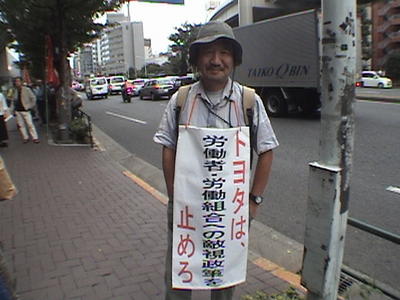 トヨタは、
労働者・労働組合への敵視政策を
止めろ
TAIKO Q'BIN